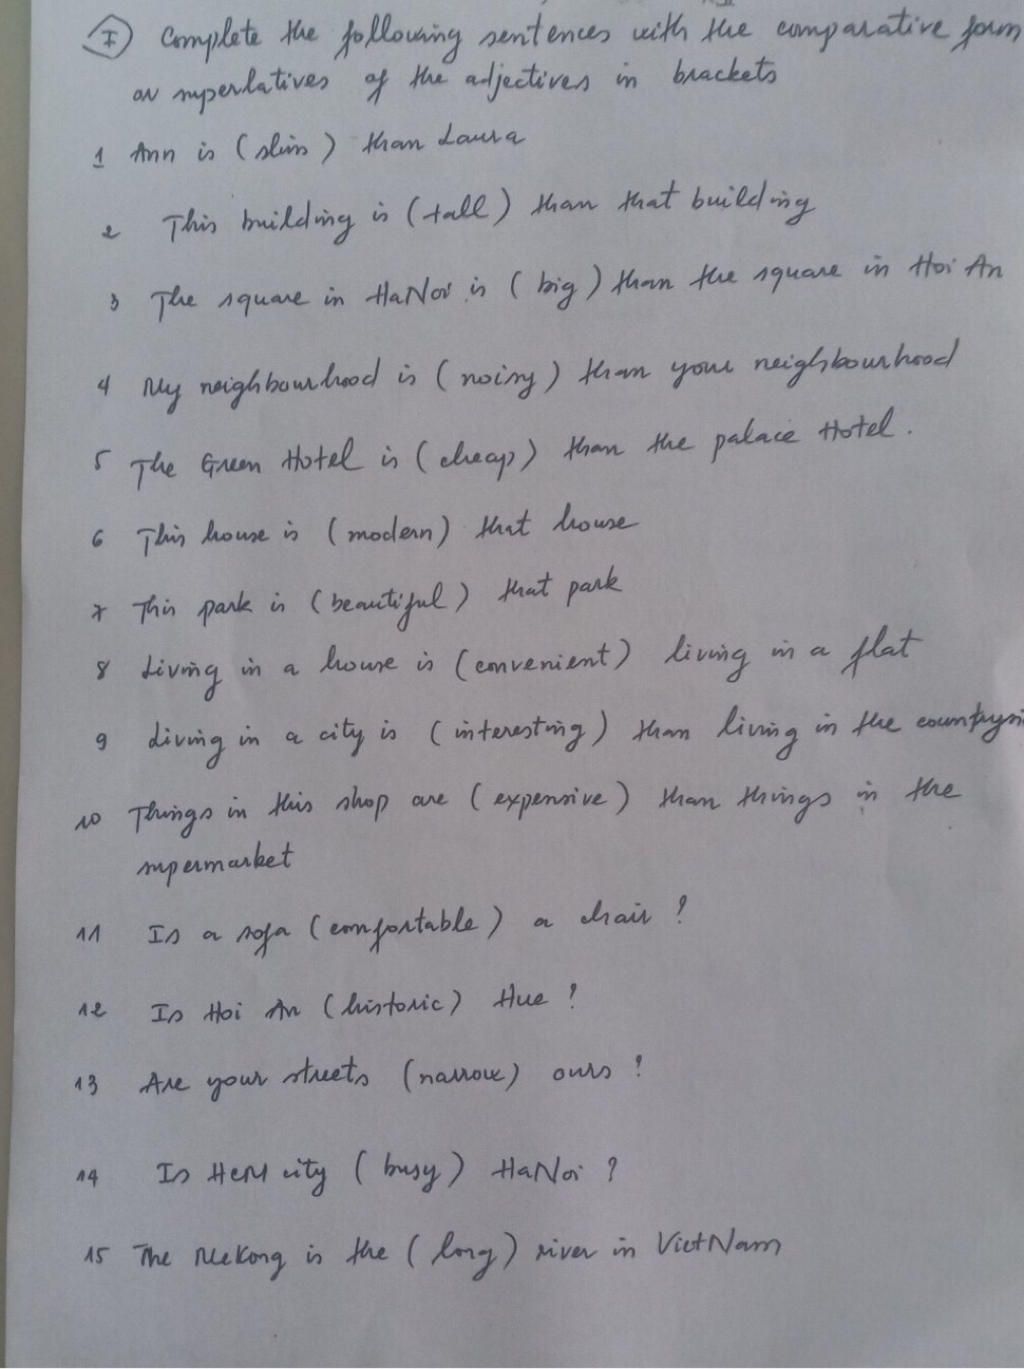 I Complete the following sentences with the comparative form
or superlatives of the adjectives in brackets
1 Ann is (slim) than Laura
2 This building is (tall) than that building
3 The square in HaNoi is (big) than the square in Hoi An
4 My neighbourhood is (noisy) than your neighbourhood
5 The Green Hotel is (cheap) than the palace Hotel.
6 This house is (modern) that house
7 This park is (beautiful) that park
8 Living in a house is (convenient) living in a flat
9 Living in a city is (interesting) than living in the countrysi
10 Things in this shop are (expensive) than things in the
supermarket
11 Is a sofa (comfortable) a chair ?
12 Is Hoi An (historic) Hue ?
13 Are your streets (narrow) ours ?
14 Is HCM city (busy) HaNoi ?
15 The MeKong is the (long) river in VietNam